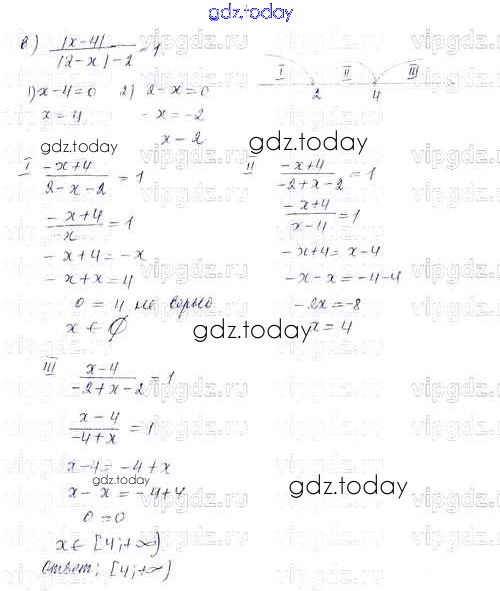 gdz.today
в) |x-4| / (|2-x|-2) = 1
I II III
2 4
1) x-4=0 2) 2-x=0
x=4 -x=-2
x-2
I (-x+4)/(2-x-2) = 1
(-x+4)/(-x) = 1
-x+4=-x
-x+x=4
0=4 не верно
x ∈ ∅
II (-x+4)/(-2+x-2) = 1
(-x+4)/(x-4) = 1
-x+4=x-4
-x-x=-4-4
-2x=-8
x=4
III (x-4)/(-2+x-2) = 1
(x-4)/(-4+x) = 1
x-4=-4+x
x-x=-4+4
0=0
x ∈ [4;+∞)
Ответ: [4;+∞)
gdz.today
gdz.today
gdz.today
gdz.today
gdz.today
vipgdz.ru